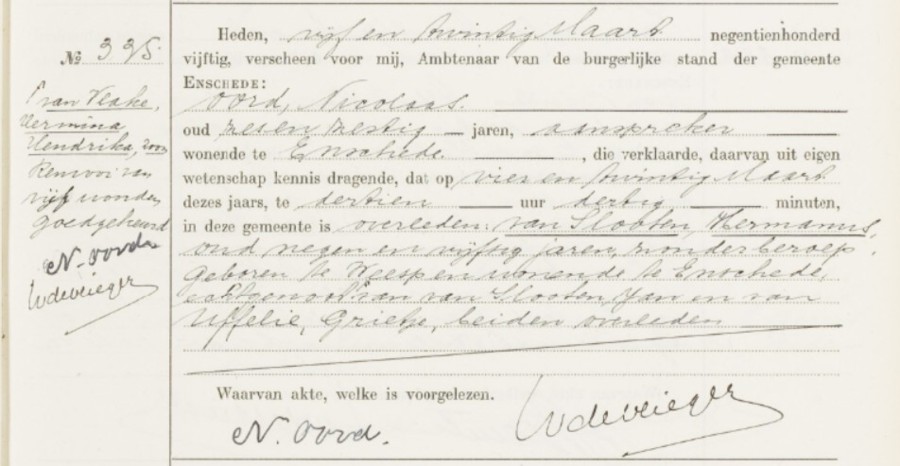 No 335
Heden, vijf en twintig Maart negentienhonderd
vijftig, verscheen voor mij, Ambtenaar van de burgerlijke stand der gemeente
ENSCHEDE:
Oord, Nicolaas.
oud zes en zestig jaren, aanspreker
wonende te Enschede, die verklaarde, daarvan uit eigen
wetenschap kennis dragende, dat op vier en twintig Maart
dezes jaars, te dertien uur dertig minuten,
in deze gemeente is overleden: van Slooten, Hermanus,
oud negen en vijftig jaren, zonder beroep
geboren te Weesp en wonende te Enschede,
van van Slooten, Jan en van
Uffelie, Grietje, beiden overleden
Waarvan akte, welke is voorgelezen.
N. Oord.
van
Hermina
Hendrika, zoon
Renvooi van
vijf woorden
goedgekeurd
N. Oord